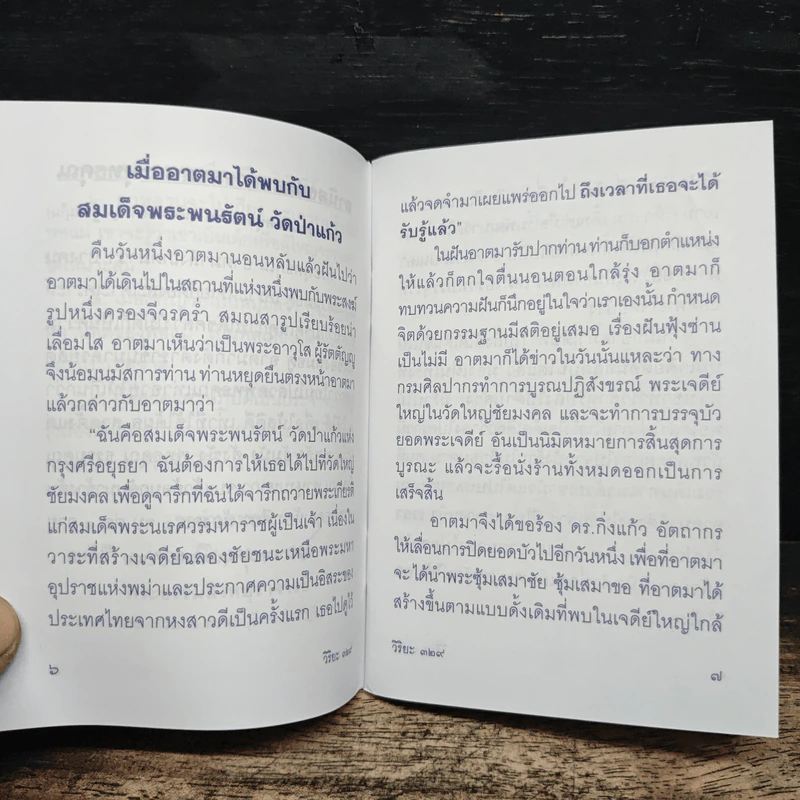 เมื่ออาตมาได้พบกับ
สมเด็จพระพนรัตน์ วัดป่าแก้ว
คืนวันหนึ่งอาตมานอนหลับแล้วฝันไปว่า
อาตมาได้เดินไปในสถานที่แห่งหนึ่งพบกับพระสงฆ์
รูปหนึ่งครองจีวรคร่ำ สมณสารูปเรียบร้อยน่า
เลื่อมใส อาตมาเห็นว่าเป็นพระอาวุโส ผู้รัตตัญญู
จึงน้อมนมัสการท่าน ท่านหยุดยืนตรงหน้าอาตมา
แล้วกล่าวกับอาตมาว่า
“ฉันคือสมเด็จพระพนรัตน์ วัดป่าแก้วแห่ง
กรุงศรีอยุธยา ฉันต้องการให้เธอได้ไปที่วัดใหญ่
ชัยมงคล เพื่อดูจารึกที่ฉันได้จารึกถวายพระเกียรติ
แก่สมเด็จพระนเรศวรมหาราชผู้เป็นเจ้า เนื่องใน
วาระที่สร้างเจดีย์ฉลองชัยชนะเหนือพระมหา
อุปราชแห่งพม่าและประกาศความเป็นอิสระของ
ประเทศไทยจากหงสาวดีเป็นครั้งแรก เธอไปดูไว้
๖
วิริยะ ๓๒๙
แล้วจดจำมาเผยแพร่ออกไป ถึงเวลาที่เธอจะได้
รับรู้แล้ว”
ในฝันอาตมารับปากท่าน ท่านก็บอกตำแหน่ง
ให้แล้วก็ตกใจตื่นนอนตอนใกล้รุ่ง อาตมาก็
ทบทวนความฝันก็นึกอยู่ในใจว่าเราเองนั้น กำหนด
จิตด้วยกรรมฐานมีสติอยู่เสมอ เรื่องฝันฟุ้งซ่าน
เป็นไม่มี อาตมาก็ได้ข่าวในวันนั้นแหละว่า ทาง
กรมศิลปากรทำการบูรณปฏิสังขรณ์ พระเจดีย์
ใหญ่ในวัดใหญ่ชัยมงคล และจะทำการบรรจุบัว
ยอดพระเจดีย์ อันเป็นนิมิตหมายการสิ้นสุดการ
บูรณะ แล้วจะรื้อนั่งร้านทั้งหมดออกเป็นการ
เสร็จสิ้น
อาตมาจึงได้ขอร้อง ดร.กิ่งแก้ว อัตถากร
ให้เลื่อนการปิดยอดบัวไปอีกวันหนึ่ง เพื่อที่อาตมา
จะได้นำพระซุ้มเสมาชัย ซุ้มเสมาขอ ที่อาตมาได้
สร้างขึ้นตามแบบดั้งเดิมที่พบในเจดีย์ใหญ่ใกล้
วิริยะ ๓๒๙
๗